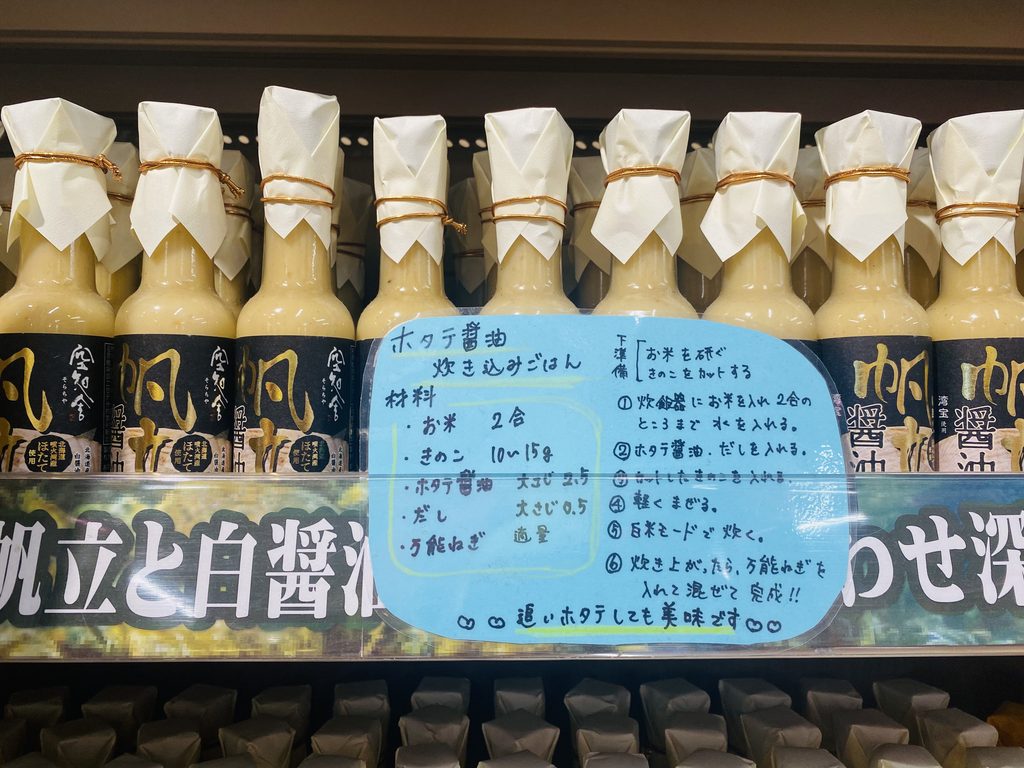 ホタテ醤油
炊き込みごはん
材料
・お米 2合
・きのこ 10〜15g
・ホタテ醤油 大さじ2.5
・だし 大さじ0.5
・万能ねぎ 適量
下準備
お米を研ぐ
きのこをカットする
① 炊飯器にお米を入れ 2合の
ところまで水を入れる。
② ホタテ醤油、だしを入れる。
③ カットしたきのこを入れる。
④ 軽くまぜる。
⑤ 白米モードで炊く。
⑥ 炊き上がったら、万能ねぎを
入れて混ぜて完成!!
♡♡ 追いホタテしても美味です♡♡
帆立と白醤油
わせ深
帆
醤油
空知舎
そらちや
北海道
噴火湾産
ほたて
使用